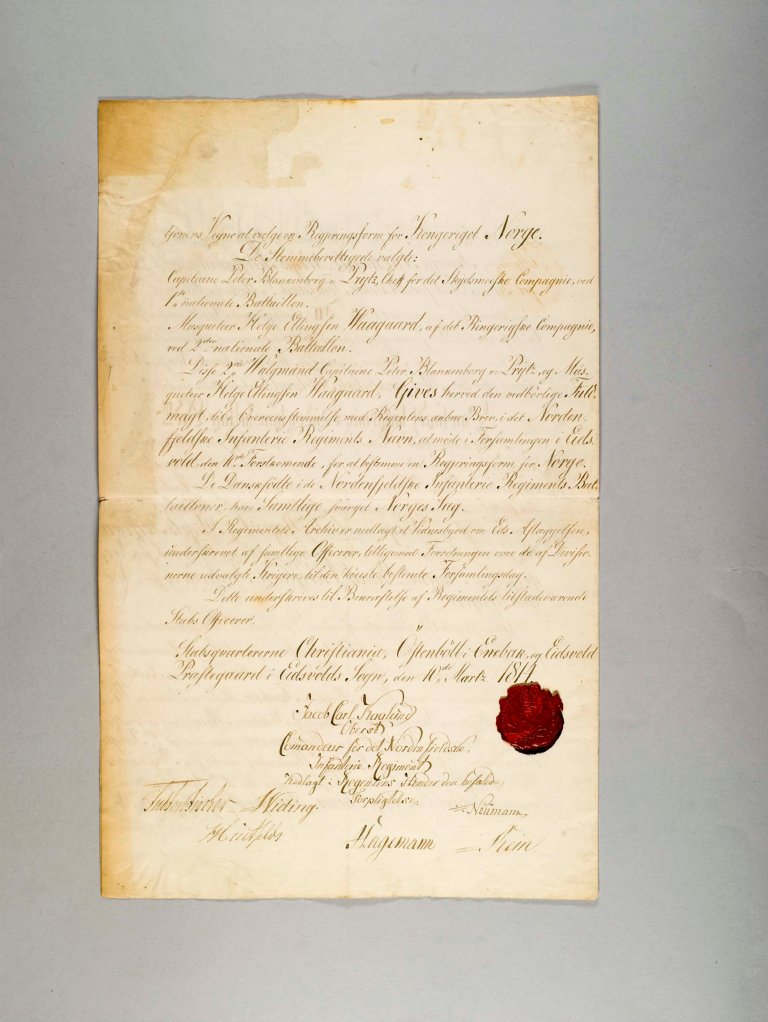 Vegne at vælge en Regjeringsform for Kongeriget Norge.
De Stemmeberettigede valgte:
Capitaine Peter Blankenborg v. Prytz, Cheff for det Skydsmoeske Compagnie, ved
1ste nationale Battaillon.
Musqueteer Helge Ellingsen Waagaard, af det Ringerigske Compagnie,
ved 2den nationale Battaillon.
Disse 2de Valgmænd Capitaine Peter Blankenborg v. Prytz, og Mus-
queteer Helge Ellingsen Waagaard, Gives herved den nødtørftige Fuld-
magt, til i Overeensstemmelse med Regentens aabne Brev, i det Norden-
fjeldske Infanterie Regiments Navn, at møde i Forsamlingen i Eids-
vold, den 10de Førstkomende, for at bestemme en Regjeringsform for Norge.
De Danskfødte i de Nordenfjeldske Infanterie Regiments Bat-
tailloner have Samtlige svoeret Norges Sag.
I Regimentets Archiv er nedlagt et Vidnesbyrd om Eds Aflæggelsen,
underskrevet af samtlige Officerer, tilligemed Forretningen over de af Divisio-
nerne udvalgte Krigere, til den bestemte Forsamlingsdag.
Dette underskrives til Bekræftelse af Regimentets tilstædeværende
Stabs Officerer.
Stabsquartererne Christiania, Östenböll i Enebak, og Eidsvold
Præstegaard i Eidsvolds Sogn, den 10de Martz 1814
Jacob Carl
Oberst
Comandeur for det Nordenfieldske
Infanterie Regiment
Nedlagt i Regentens Hænder den befalede
Forpligtelse
Widing.
Neumann
Hagemann
Rein.